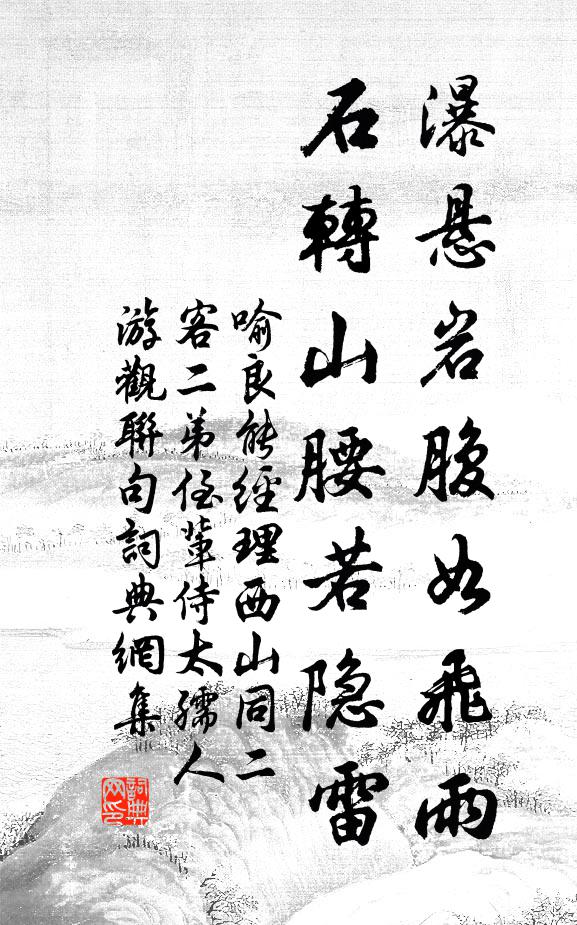 瀑悬岩腹如飛雨
石轉山腰若隐雷
喻良能經理西山同二
客二弟侄輩侍太孺人
游觀聯句詞典網集
詞典
网印